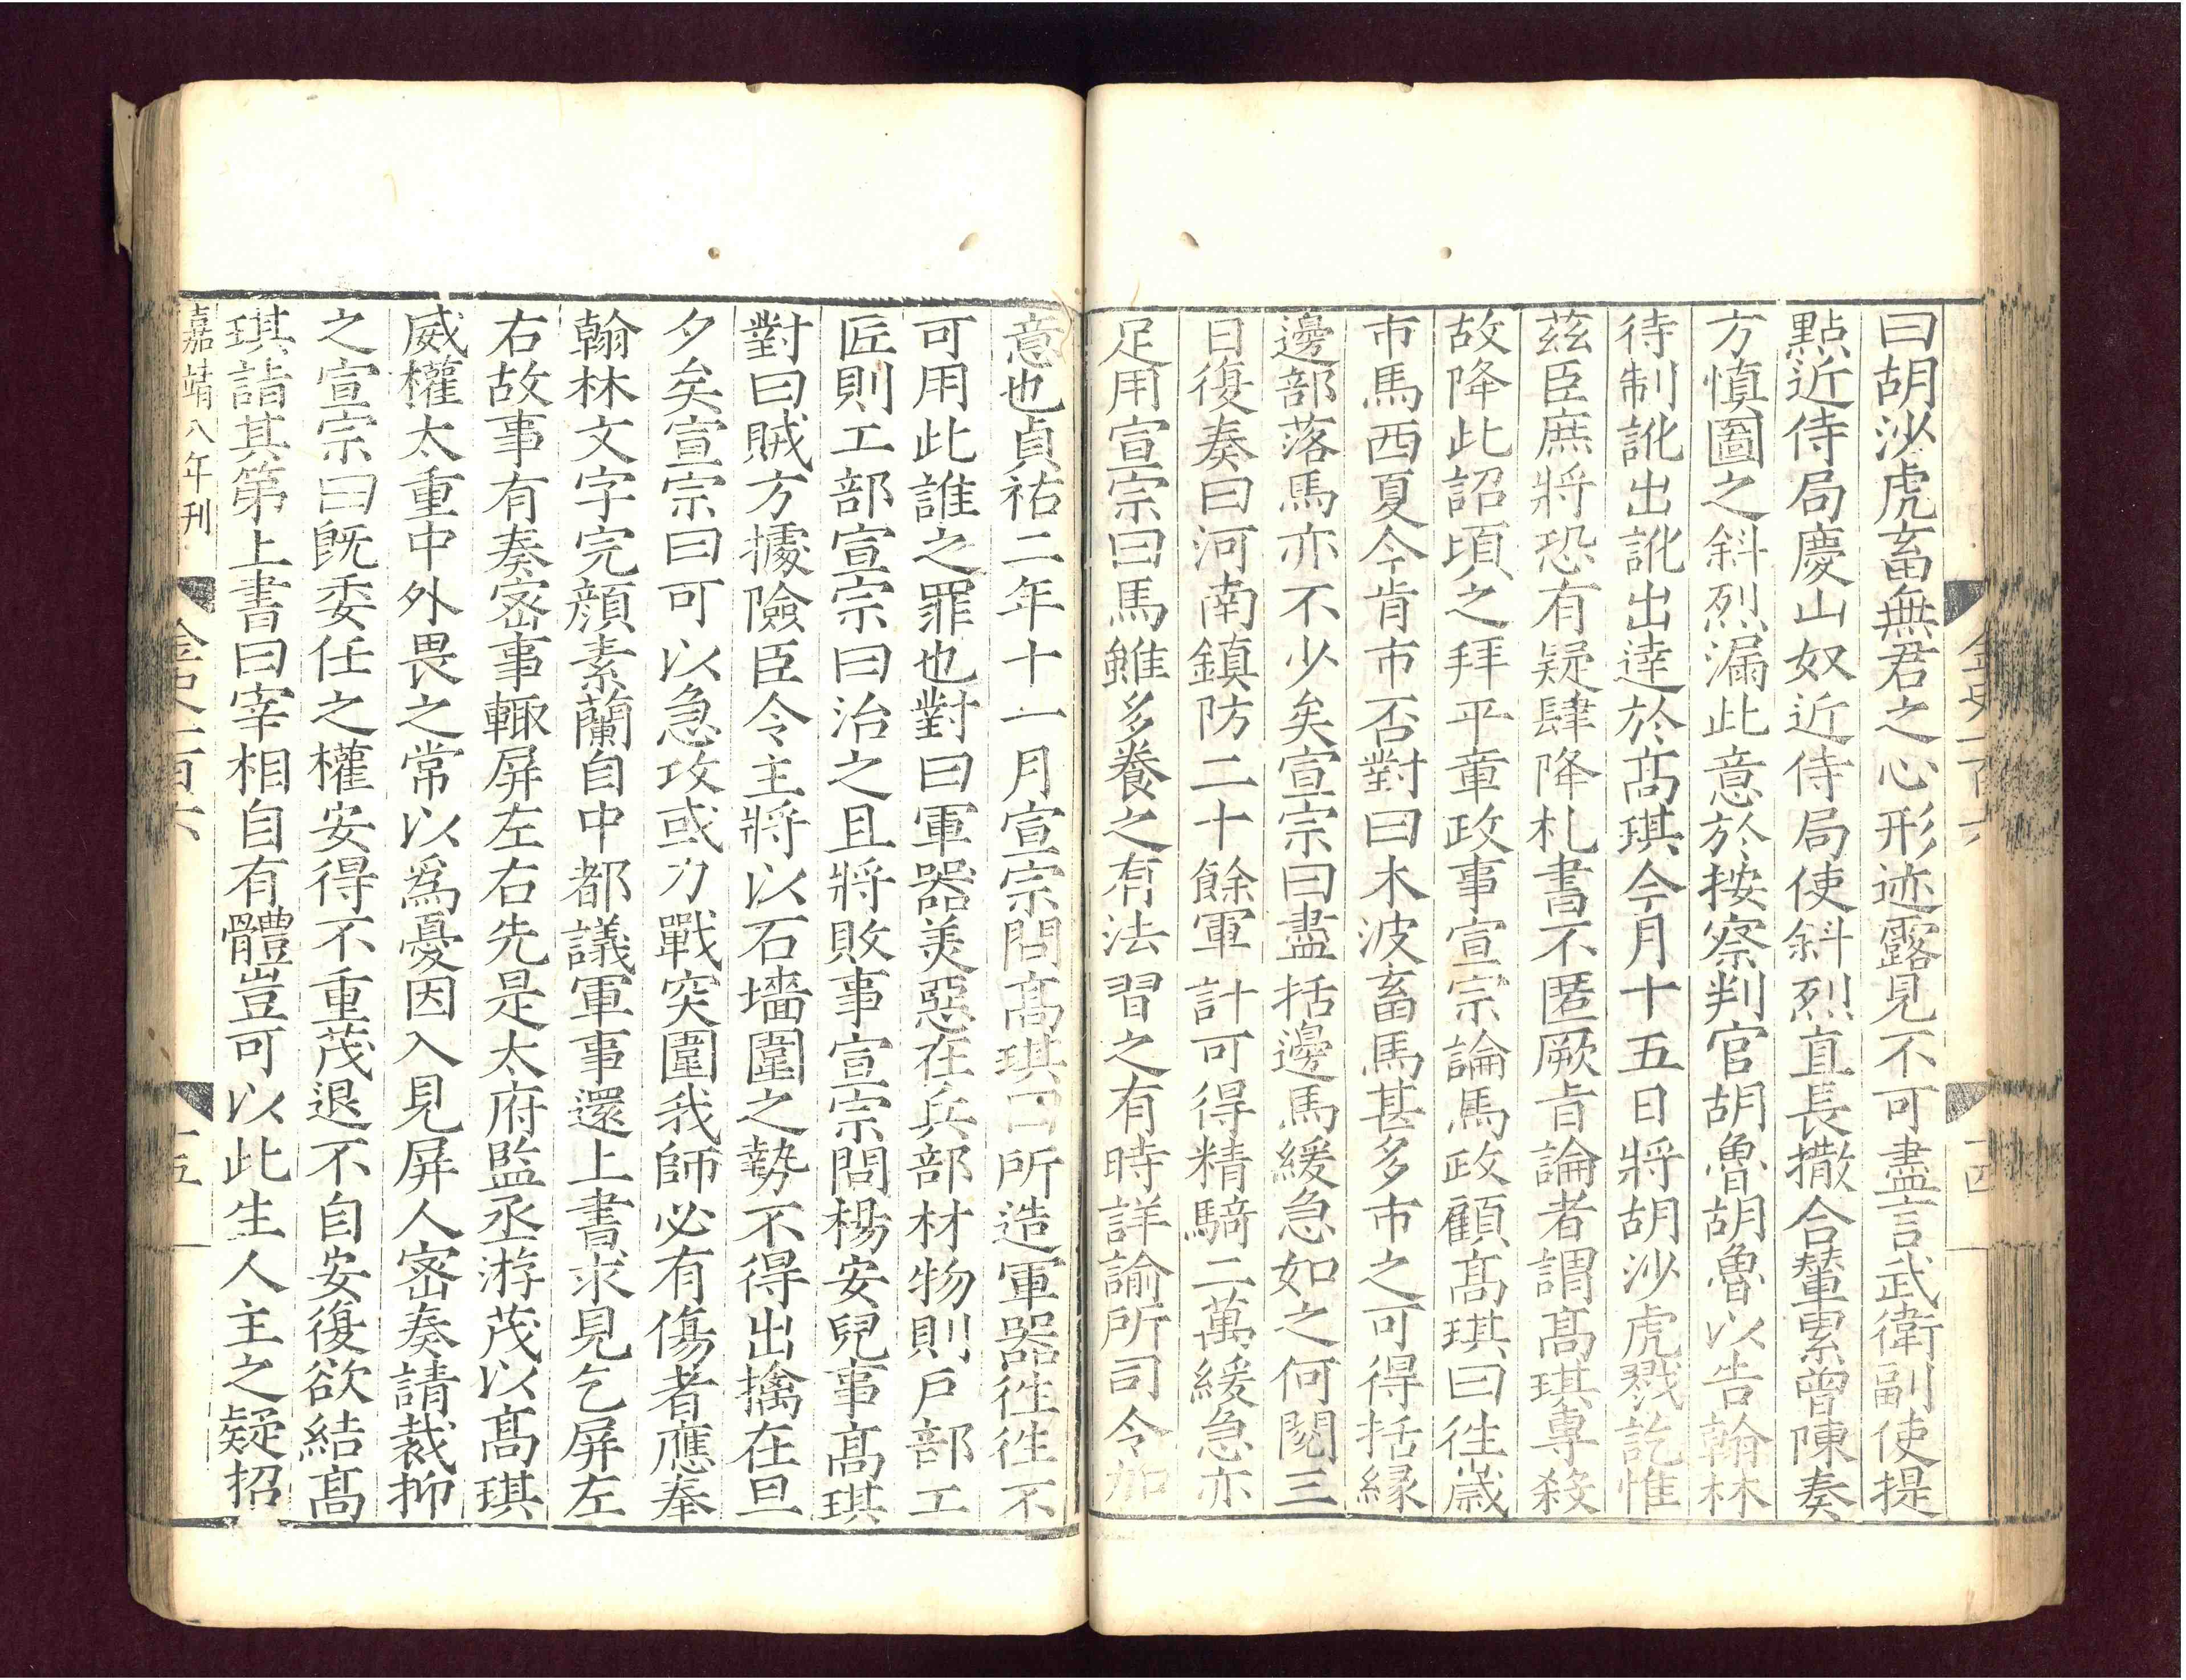 曰胡沙虎畜無君之心形迹露見不可盡言武衛副使提
點近侍局慶山奴近侍局使斜烈直長撒合輦累曾陳奏
方慎圖之斜烈漏此意於按察判官胡魯胡魯以告翰林
待制訛出訛出達於高琪今月十五日將胡沙虎戮訖惟
茲臣庶將恐有疑肆降札書不匿厥旨論者謂高琪專殺
故降此詔頃之拜平章政事宣宗論馬政顧高琪曰往歲
市馬西夏今肯市否對曰木波畜馬甚多市之可得括緣
邊部落馬亦不少矣宣宗曰盡括邊馬緩急如之何閱三
日復奏曰河南鎮防二十餘軍計可得精騎二萬緩急亦
足用宣宗曰馬雖多養之有法習之有時詳諭所司令加
金史一百六
十四
意也貞祐二年十一月宣宗問高琪曰所造軍器往往不
可用此誰之罪也對曰軍器美惡在兵部材物則戶部工
匠則工部宣宗曰治之且將敗事宣宗問楊安兒事高琪
對曰賊方據險臣令主將以石墻圍之勢不得出擒在旦
夕矣宣宗曰可以急攻或力戰突圍我師必有傷者應奉
翰林文字完顏素蘭自中都議軍事還上書求見乞屏左
右故事有奏密事輙屏左右先是太府監丞游茂以高琪
威權太重中外畏之常以為憂因入見屏人密奏請裁抑
之宣宗曰既委任之權安得不重茂退不自安復欲結高
琪詣其第上書曰宰相自有體豈可以此生人主之疑招
嘉靖八年刊
金史一百六
十五